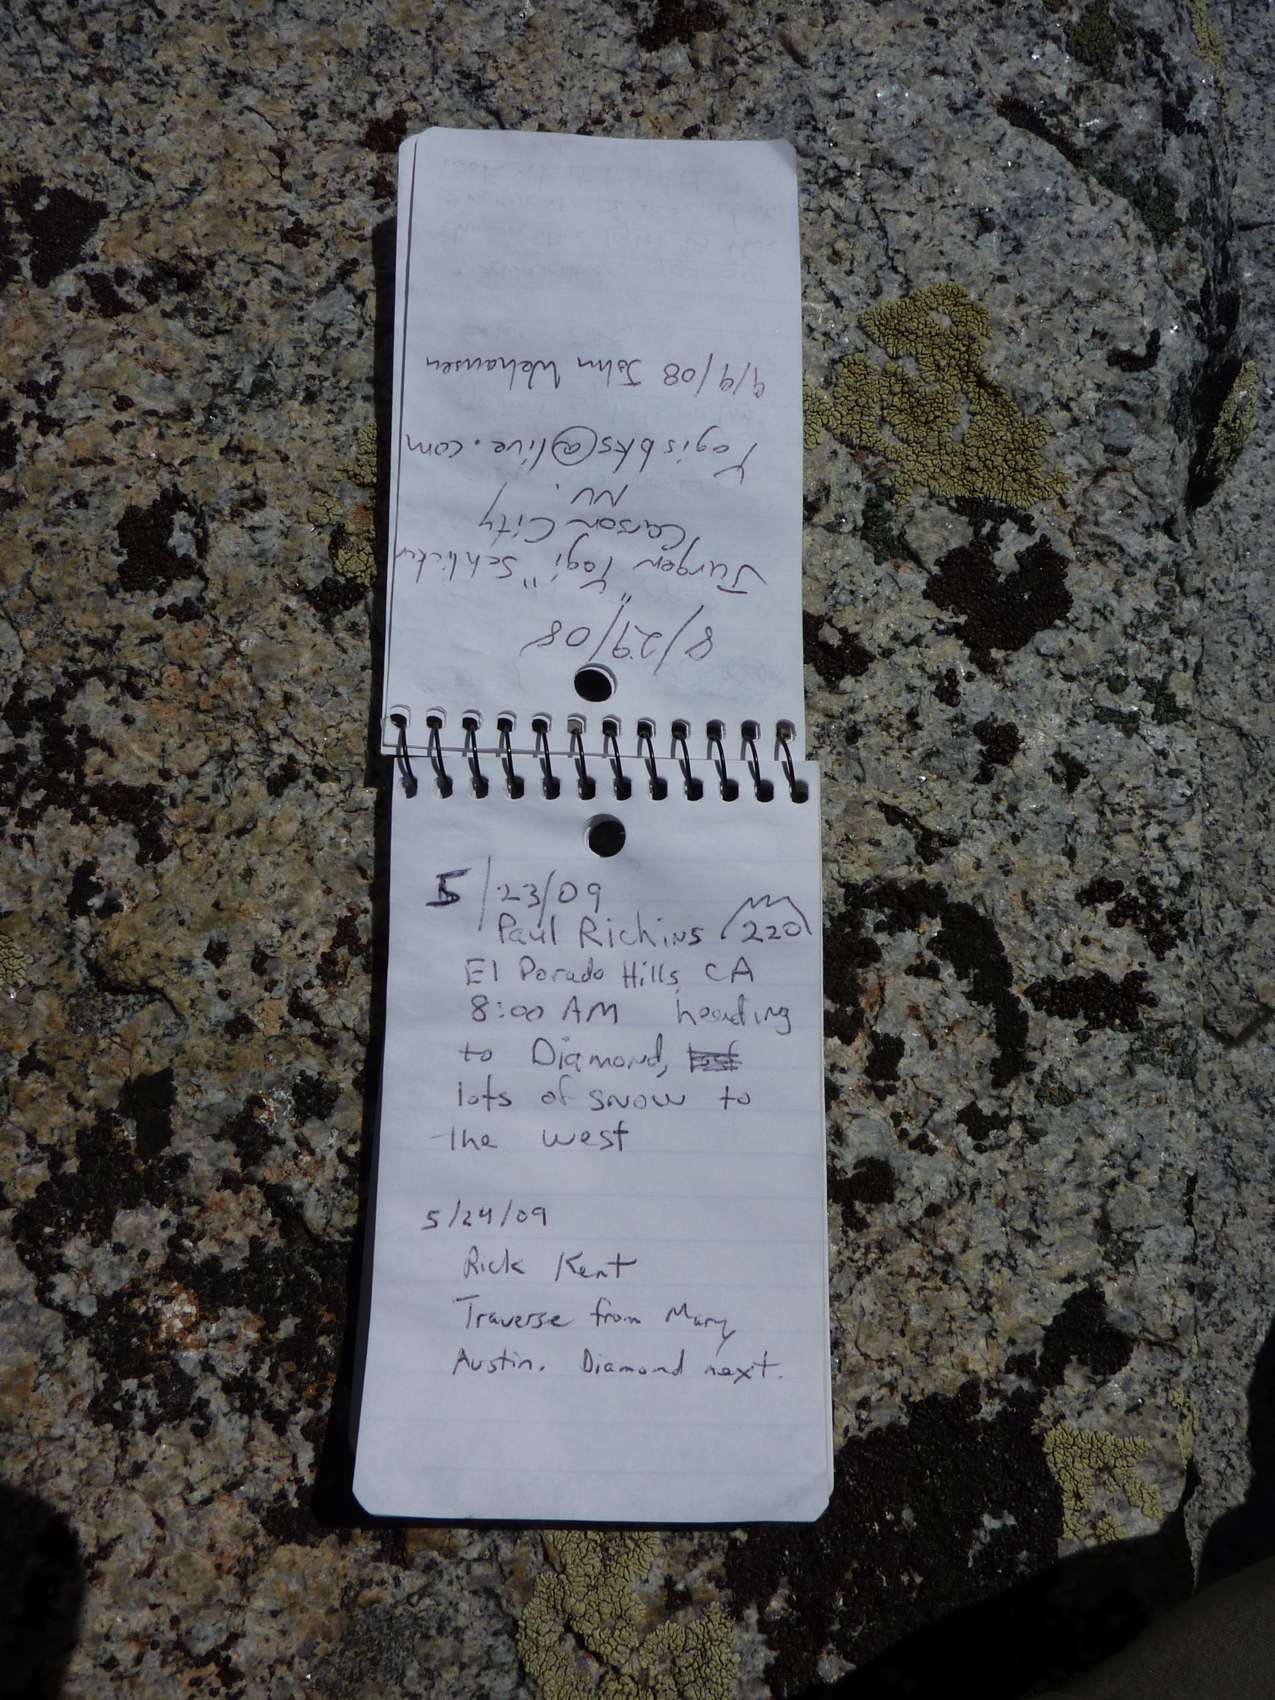 8/29/08
Jurgen "Yogi"
Carson City
NV.
Yogisbks@live.com
9/9/08 John Wehausen
5/23/09
Paul Richins 220
El Dorado Hills, CA
8:00 AM heading
to Diamond,
lots of snow to
the west
5/24/09
Rick Kent
Traverse from Mary
Austin. Diamond next.